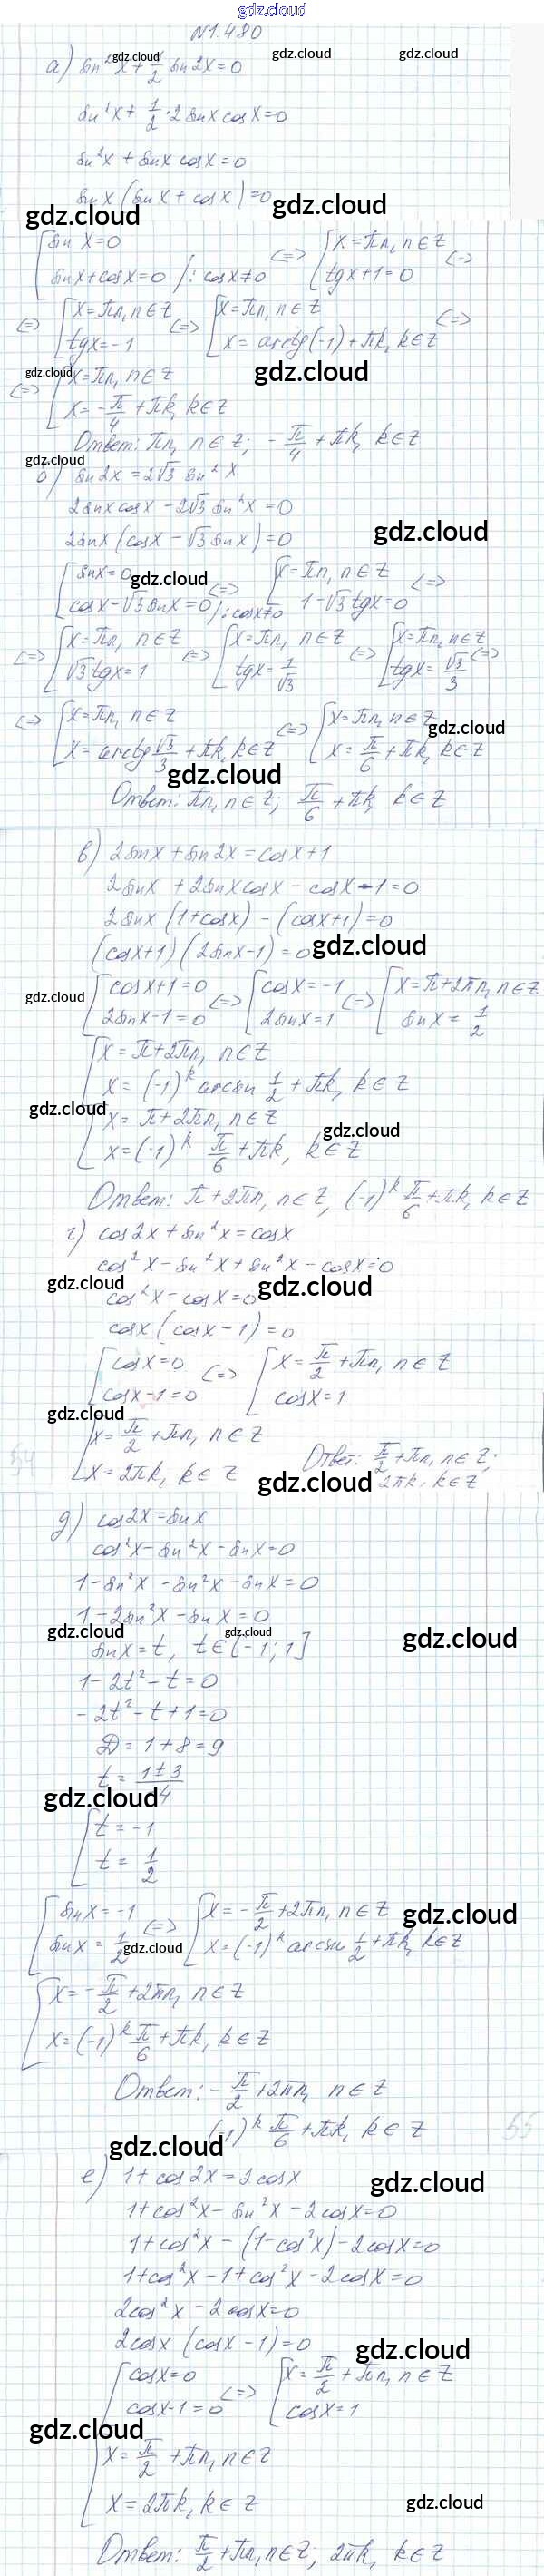 gdz.cloud
№1.480
gdz.cloud gdz.cloud gdz.cloud
а) sin²x + 1/2 sin2x = 0
sin²x + 1/2 · 2 sinx cosx = 0
sin²x + sinx cosx = 0
sinx (sinx + cosx) = 0
gdz.cloud gdz.cloud
[ sinx = 0 <=> [ x = πn, n ∈ Z <=>
sinx + cosx = 0 /: cosx ≠ 0 tgx + 1 = 0
<=> [ x = πn, n ∈ Z <=> [ x = πn, n ∈ Z <=>
tgx = -1 x = arctg(-1) + πk, k ∈ Z
gdz.cloud gdz.cloud
<=> [ x = πn, n ∈ Z
x = -π/4 + πk, k ∈ Z
Ответ: πn, n ∈ Z; -π/4 + πk, k ∈ Z
gdz.cloud
б) sin2x = 2√3 sin²x
2sinx cosx - 2√3 sin²x = 0
gdz.cloud
2sinx (cosx - √3 sinx) = 0
gdz.cloud
[ sinx = 0 <=> [ x = πn, n ∈ Z <=>
cosx - √3 sinx = 0 /: cosx ≠ 0 1 - √3 tgx = 0
<=> [ x = πn, n ∈ Z <=> [ x = πn, n ∈ Z <=> [ x = πn, n ∈ Z
√3 tgx = 1 tgx = 1/√3 tgx = √3/3 <=>
<=> [ x = πn, n ∈ Z <=> [ x = πn, n ∈ Z
gdz.cloud
x = arctg √3/3 + πk, k ∈ Z x = π/6 + πk, k ∈ Z
gdz.cloud
Ответ: πn, n ∈ Z; π/6 + πk, k ∈ Z
в) 2sinx + sin2x = cosx + 1
2sinx + 2sinx cosx - cosx - 1 = 0
2sinx (1 + cosx) - (cosx + 1) = 0
(cosx + 1)(2sinx - 1) = 0
gdz.cloud
gdz.cloud
[ cosx + 1 = 0 <=> [ cosx = -1 <=> [ x = π + 2πn, n ∈ Z
2sinx - 1 = 0 2sinx = 1 sinx = 1/2
[ x = π + 2πn, n ∈ Z
x = (-1)^k arcsin 1/2 + πk, k ∈ Z
gdz.cloud
[ x = π + 2πn, n ∈ Z
gdz.cloud
x = (-1)^k π/6 + πk, k ∈ Z
Ответ: π + 2πn, n ∈ Z, (-1)^k π/6 + πk, k ∈ Z
г) cos2x + sin²x = cosx
cos²x - sin²x + sin²x - cosx = 0
gdz.cloud gdz.cloud
cos²x - cosx = 0
cosx (cosx - 1) = 0
[ cosx = 0 <=> [ x = π/2 + πn, n ∈ Z
cosx - 1 = 0 cosx = 1
gdz.cloud
[ x = π/2 + πn, n ∈ Z
x = 2πk, k ∈ Z
Ответ: π/2 + πn, n ∈ Z;
2πk, k ∈ Z
gdz.cloud
54
д) cos2x = sinx
cos²x - sin²x - sinx = 0
1 - sin²x - sin²x - sinx = 0
1 - 2sin²x - sinx = 0
gdz.cloud gdz.cloud gdz.cloud
sinx = t, t ∈ [-1; 1]
1 - 2t² - t = 0
-2t² - t + 1 = 0
D = 1 + 8 = 9
t = (1 ± 3)/-4
gdz.cloud
[ t = -1
t = 1/2
[ sinx = -1 <=> [ x = -π/2 + 2πn, n ∈ Z
gdz.cloud
sinx = 1/2 x = (-1)^k arcsin 1/2 + πk, k ∈ Z
gdz.cloud
[ x = -π/2 + 2πn, n ∈ Z
x = (-1)^k π/6 + πk, k ∈ Z
Ответ: -π/2 + 2πn, n ∈ Z
(-1)^k π/6 + πk, k ∈ Z
55
gdz.cloud
е) 1 + cos2x = 2cosx
gdz.cloud
1 + cos²x - sin²x - 2cosx = 0
1 + cos²x - (1 - cos²x) - 2cosx = 0
1 + cos²x - 1 + cos²x - 2cosx = 0
2cos²x - 2cosx = 0
2cosx (cosx - 1) = 0
gdz.cloud
[ cosx = 0 <=> [ x = π/2 + πn, n ∈ Z
cosx - 1 = 0 cosx = 1
gdz.cloud
[ x = π/2 + πn, n ∈ Z
x = 2πk, k ∈ Z
gdz.cloud
Ответ: π/2 + πn, n ∈ Z; 2πk, k ∈ Z